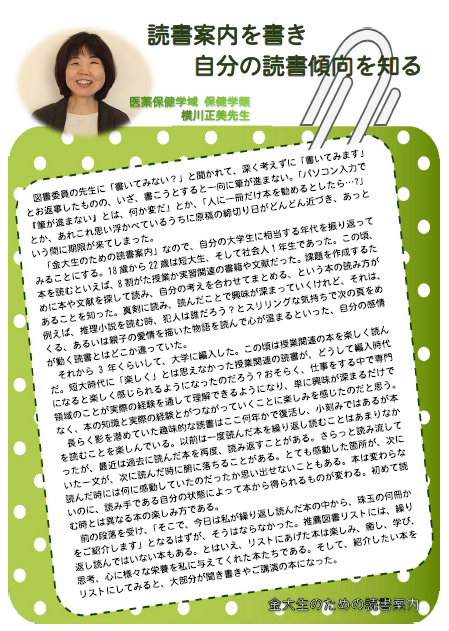 読書案内を書き
自分の読書傾向を知る
医薬保健学域 保健学類
横川正美先生
図書委員の先生に「書いてみない？」と聞かれて、深く考えずに「書いてみます」
とお返事したものの、いざ、書こうとすると一向に筆が進まない。「パソコン入力で
『筆が進まない』とは、何か変だ」とか、「人に一冊だけ本を勧めるとしたら…？」
とか、あれこれ思い浮かべているうちに原稿の締切り日がどんどん近づき、あっと
いう間に期限が来てしまった。
「金大生のための読書案内」なので、自分の大学生に相当する年代を振り返って
みることにする。18歳から22歳は短大生、そして社会人1年生であった。この頃、
本を読むといえば、8割がた授業か実習関連の書籍や文献だった。課題を作成するた
めに本や文献を探して読み、自分の考えを合わせてまとめる、という本の読み方が
あることを知った。真剣に読み、読んだことで興味が深まっていくけれど、それは、
例えば、推理小説を読む時、犯人は誰だろう？とスリリングな気持ちで次の頁をめ
くる、あるいは親子の愛情を描いた物語を読んで心が温まるといった、自分の感情
が動く読書とはどこか違っていた。
それから 3 年くらいして、大学に編入した。この頃は授業関連の本を楽しく読ん
だ。短大時代に「楽しく」とは思えなかった授業関連の読書が、どうして編入時代
になると楽しく感じられるようになったのだろう？おそらく、仕事をする中で専門
領域のことが実際の経験を通して理解できるようになり、単に興味が深まるだけで
なく、本の知識と実際の経験とがつながっていくことに楽しみを感じたのだと思う。
長らく影を潜めていた趣味的な読書はここ何年かで復活し、小刻みではあるが本
を読むことを楽しんでいる。以前は一度読んだ本を繰り返し読むことはあまりなか
ったが、最近は過去に読んだ本を再度、読み返すことがある。さらっと読み流して
いた一文が、次に読んだ時に腑に落ちることがある。とても感動した箇所が、次に
読んだ時には何に感動していたのだったか思い出せないこともある。本は変わらな
いのに、読み手である自分の状態によって本から得られるものが変わる。初めて読
む時とは異なる本の楽しみ方である。
前の段落を受け、「そこで、今日は私が繰り返し読んだ本の中から、珠玉の何冊か
をご紹介します」となるはずが、そうはならなかった。推薦図書リストには、繰り
返し読んではいない本もある。とはいえ、リストにあげた本は楽しみ、癒し、学び、
思考、心に様々な栄養を私に与えてくれた本たちである。そして、紹介したい本を
リストにしてみると、大部分が聞き書きやご講演の本になった。
金大生のための読書案内